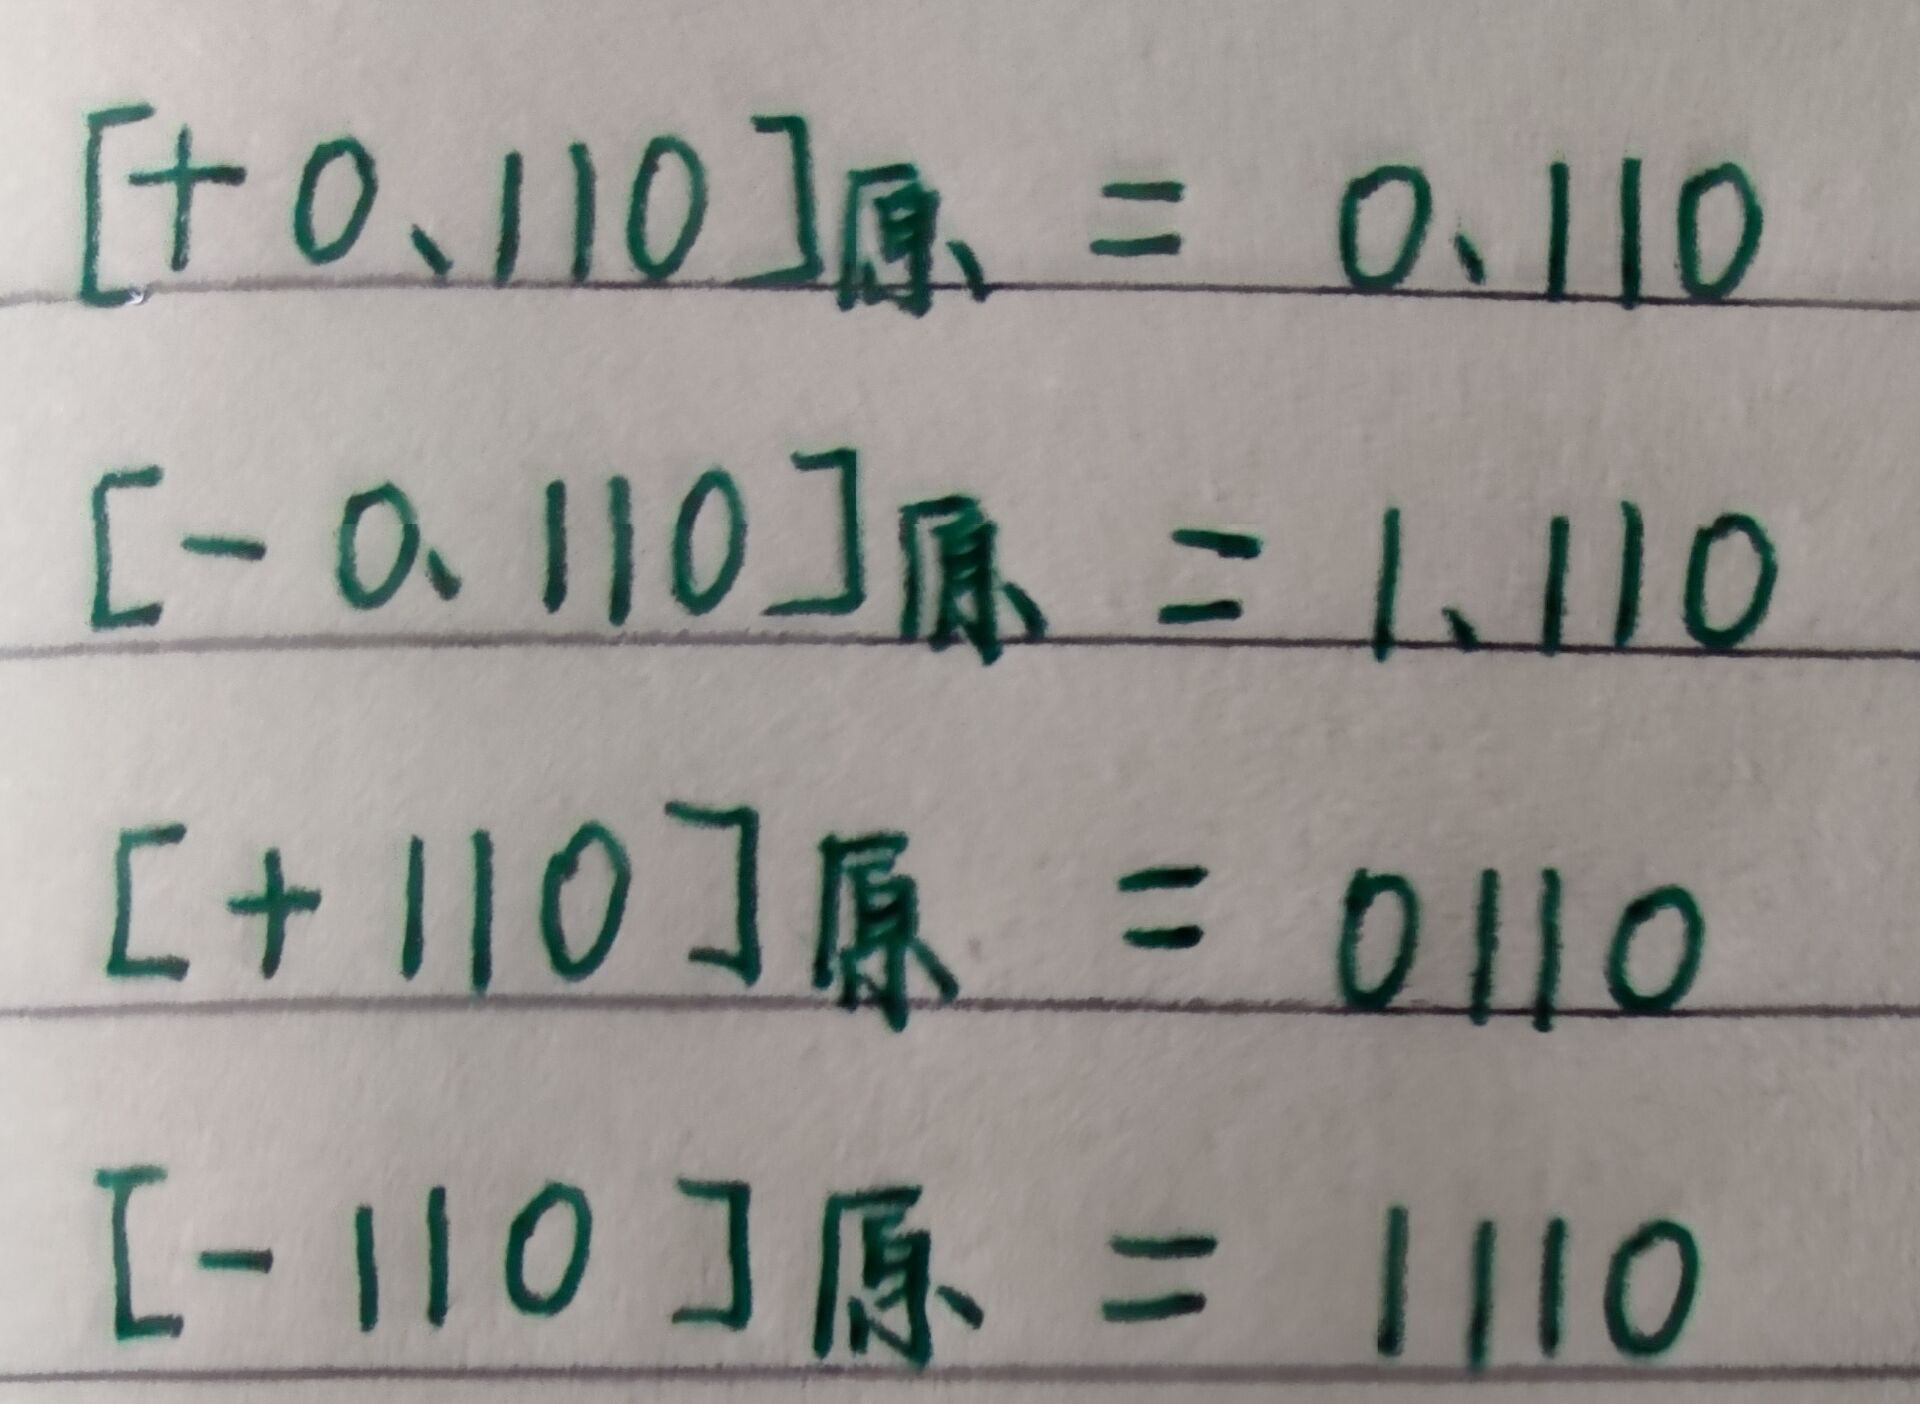 [+0.110]原 = 0.110
[-0.110]原 = 1.110
[+110]原 = 0110
[-110]原 = 1110